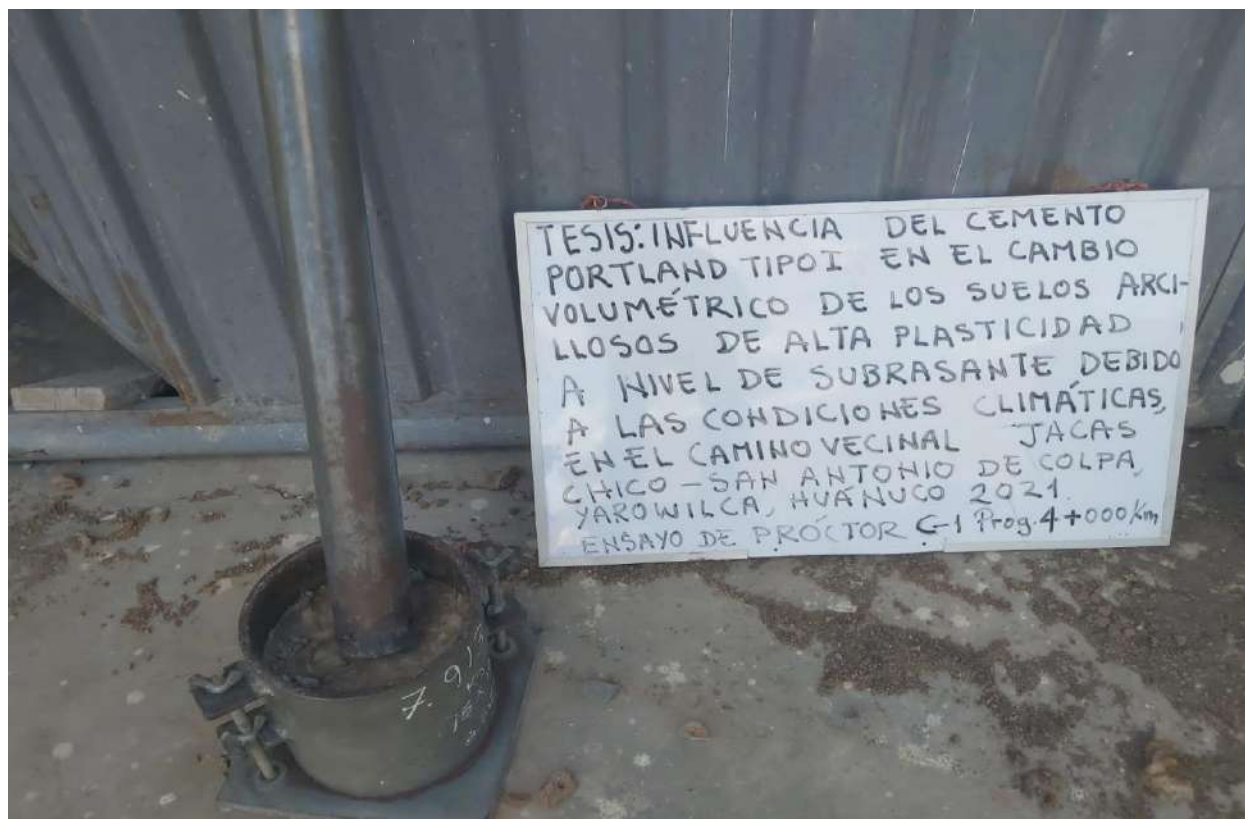 TESIS: INFLUENCIA DEL CEMENTO
PORTLAND TIPO I EN EL CAMBIO
VOLUMÉTRICO DE LOS SUELOS ARCI-
LLOSOS DE ALTA PLASTICIDAD
A NIVEL DE SUBRASANTE DEBIDO
A LAS CONDICIONES CLIMÁTICAS,
EN EL CAMINO VECINAL JACAS
CHICO - SAN ANTONIO DE COLPA,
YAROWILCA, HUÁNUCO 2021.
ENSAYO DE PRÓCTOR C-1 Prog. 4+000 Km